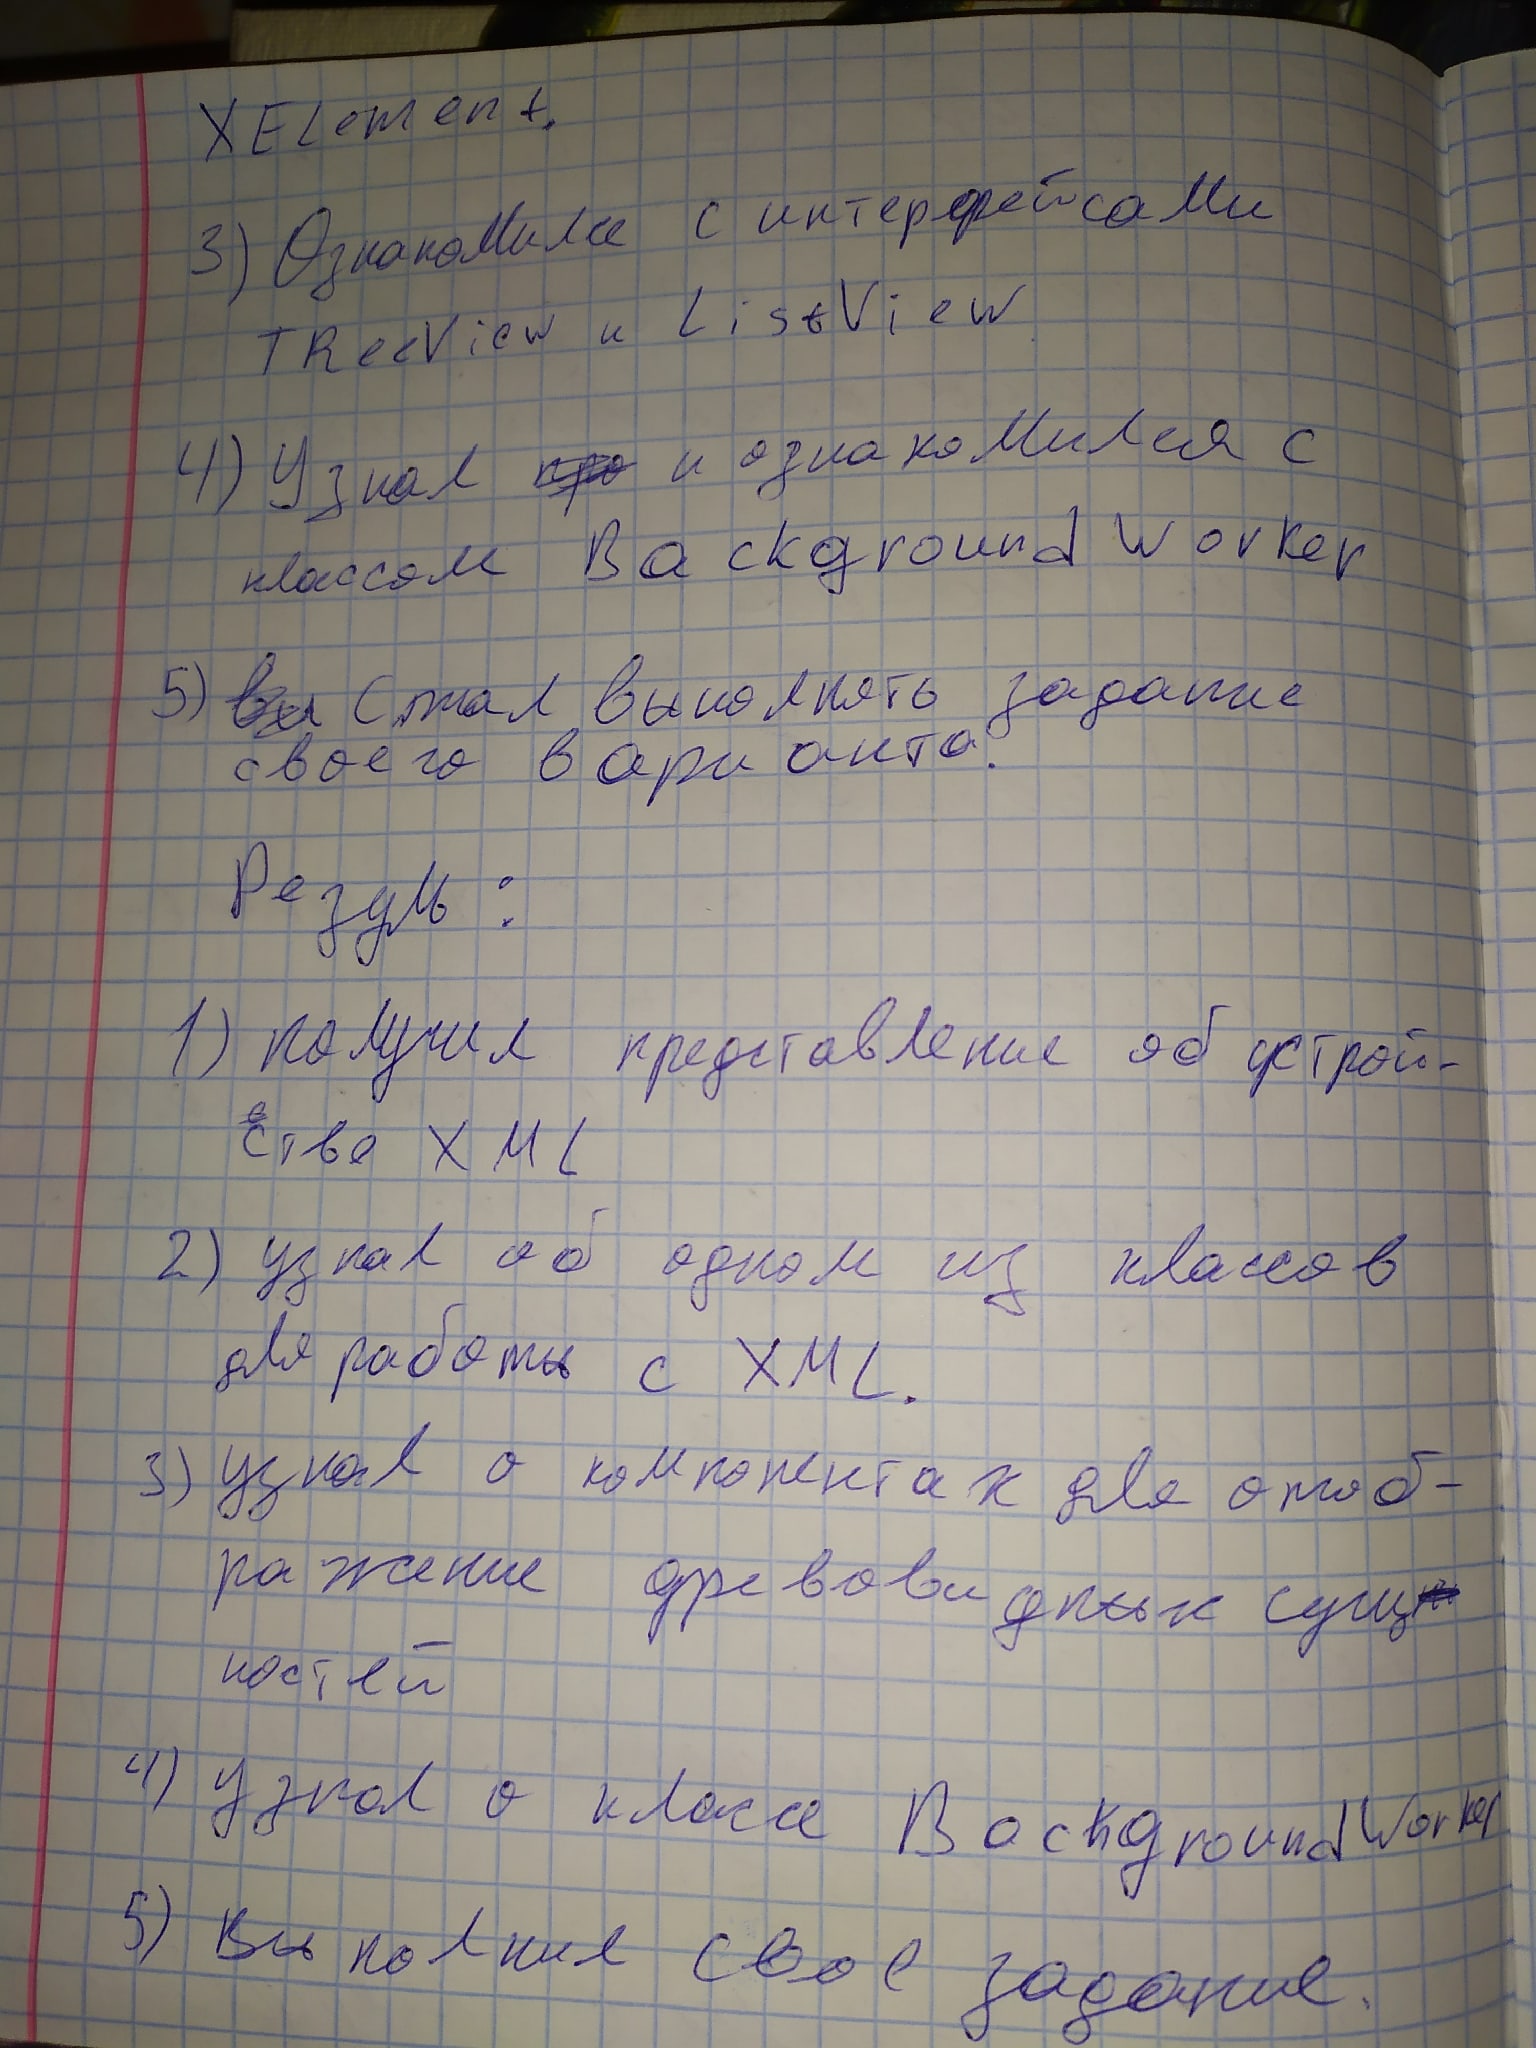 XELement.
3) Ознакомился с интерфейсами
TReeView и ListView
4) Узнал и ознакомился с
классом BackgroundWorker
5) Стал выполнять задание
своего варианта.
Резуль:
1) получил представление об устрой-
стве XML
2) узнал об одном из классов
для работы с XML.
3) узнал о компонентах для отоб-
ражение древовидных сущ
ностей
4) узнал о классе BackgroundWorker
5) Выполнил свое задание.